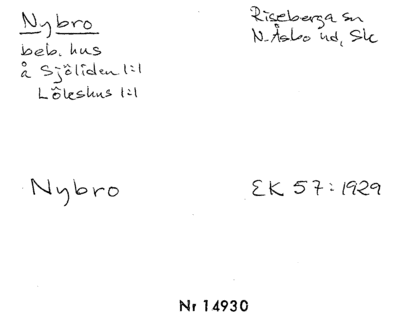 Nybro
beb. hus
å Sjöliden 1:1
Löleshus 1:1
Riseberga sn
N. Åsbo hd, Sk
Nybro
EK 57:1929
Nr 14930